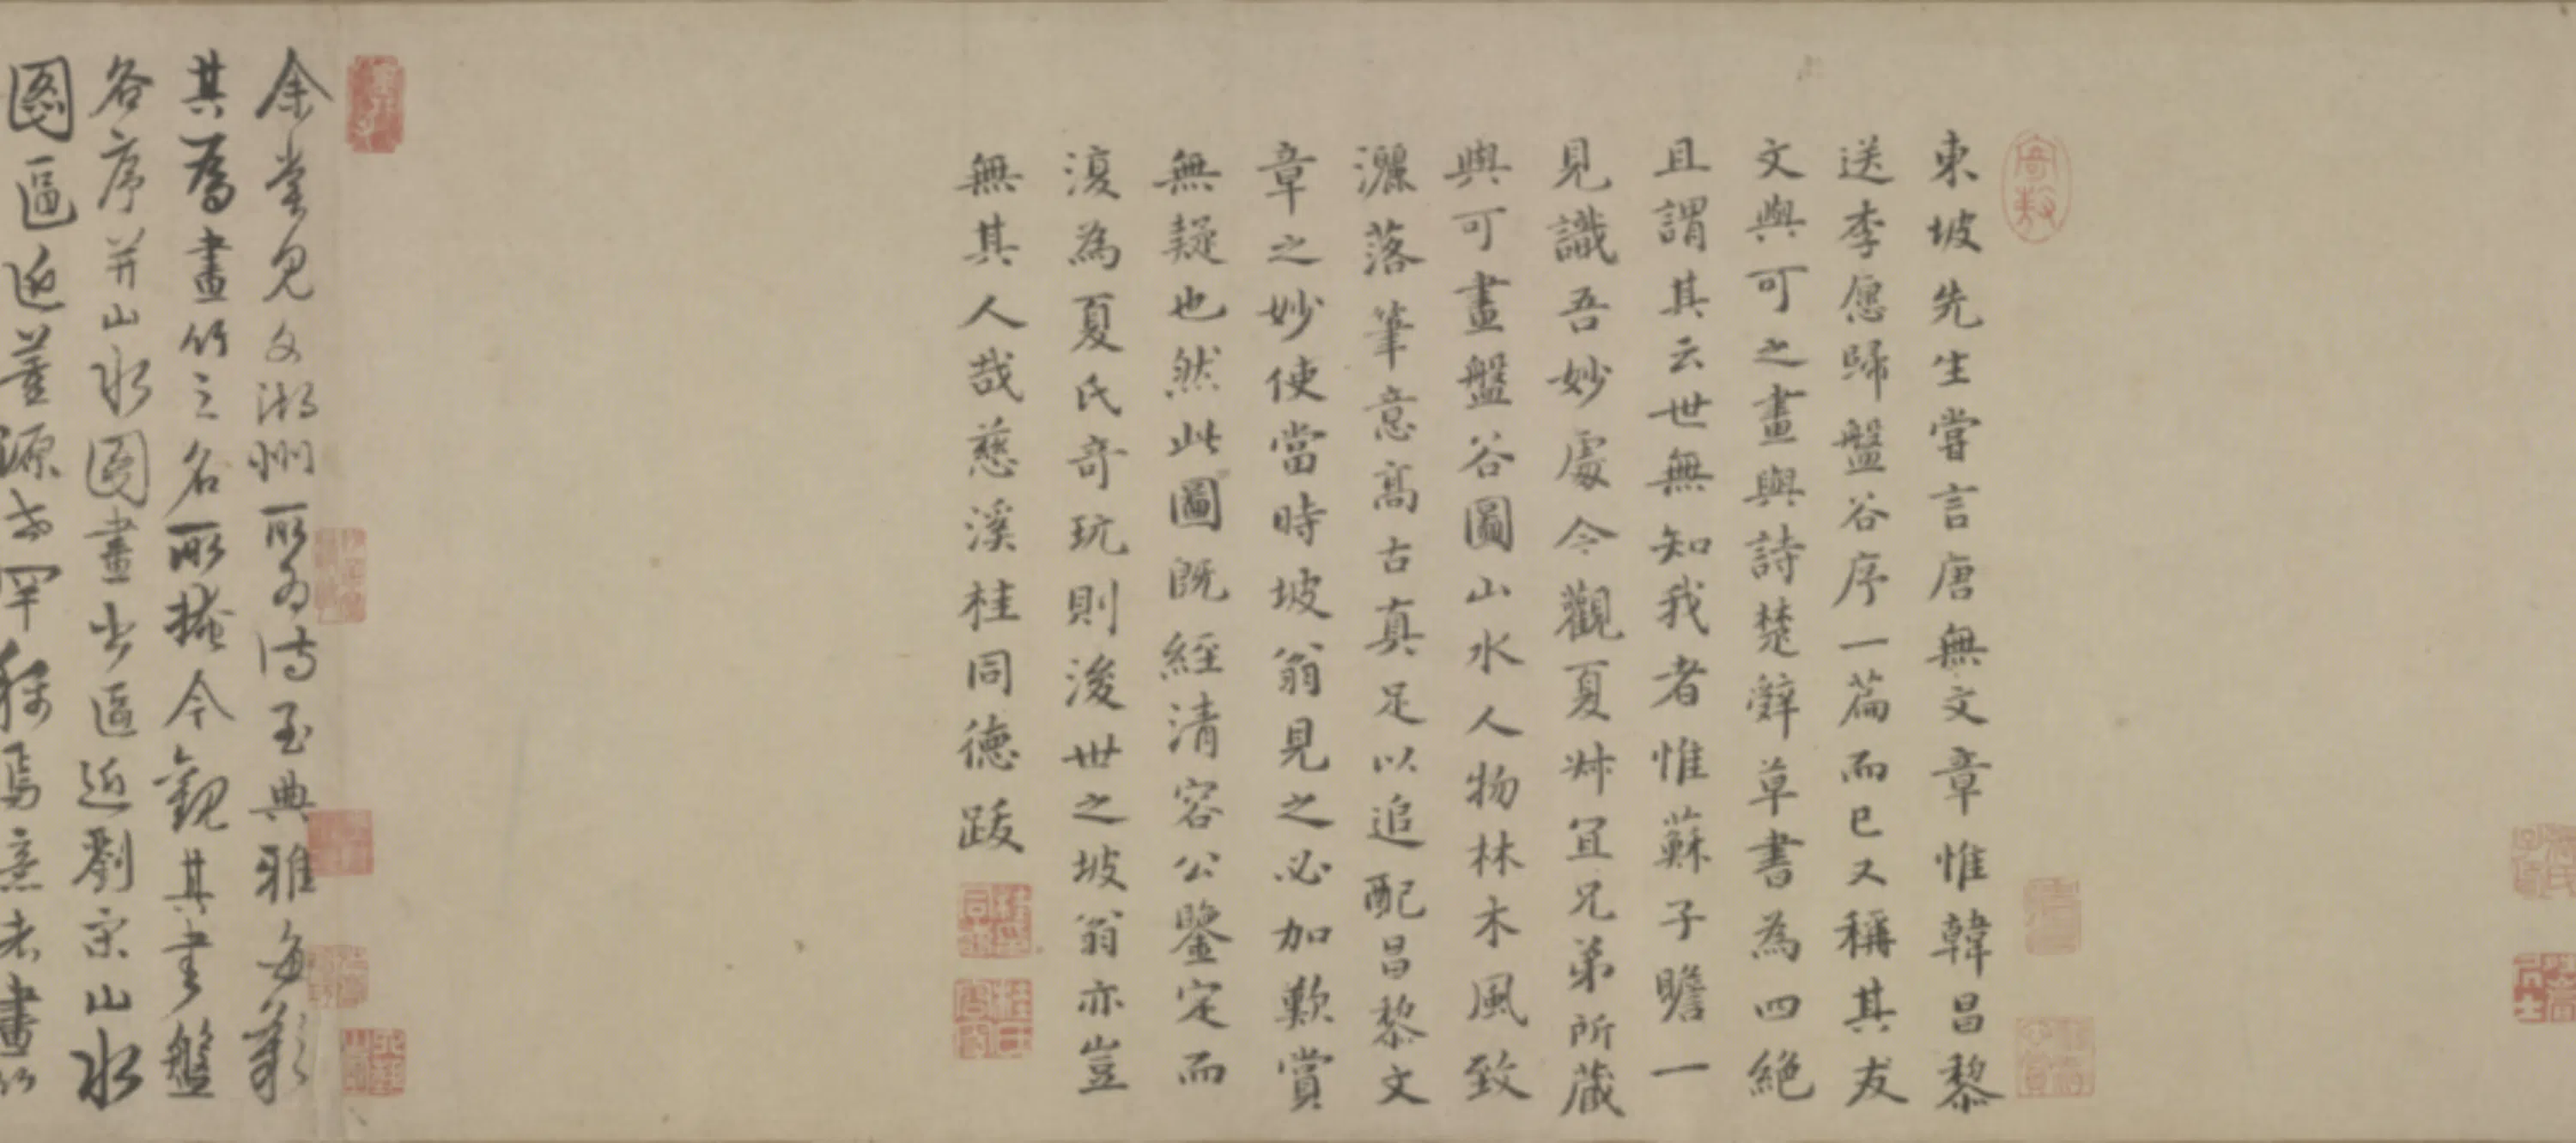 東坡先生嘗言唐無文章惟韓昌黎
送李愿歸盤谷序一篇而已又稱其友
文與可之畫與詩楚辭草書為四絶
且謂其云世無知我者惟蘇子瞻一
見識吾妙處今觀夏叔宜兄弟所蔵
與可畫盤谷圖山水人物林木風致
灑落筆意髙古真足以追配昌黎文
章之妙使當時坡翁見之必加歎賞
無疑也然此圖既經清容公鑒定而
復為夏氏奇玩則後世之坡翁亦豈
無其人哉慈溪桂同德跋
余嘗見文湖州所為詩至典雅每歎
其為畫竹之名所掩今觀其書盤
谷序并山水圖畫出區近劉宗山水
圖區近董源古罕稱焉意者畫竹